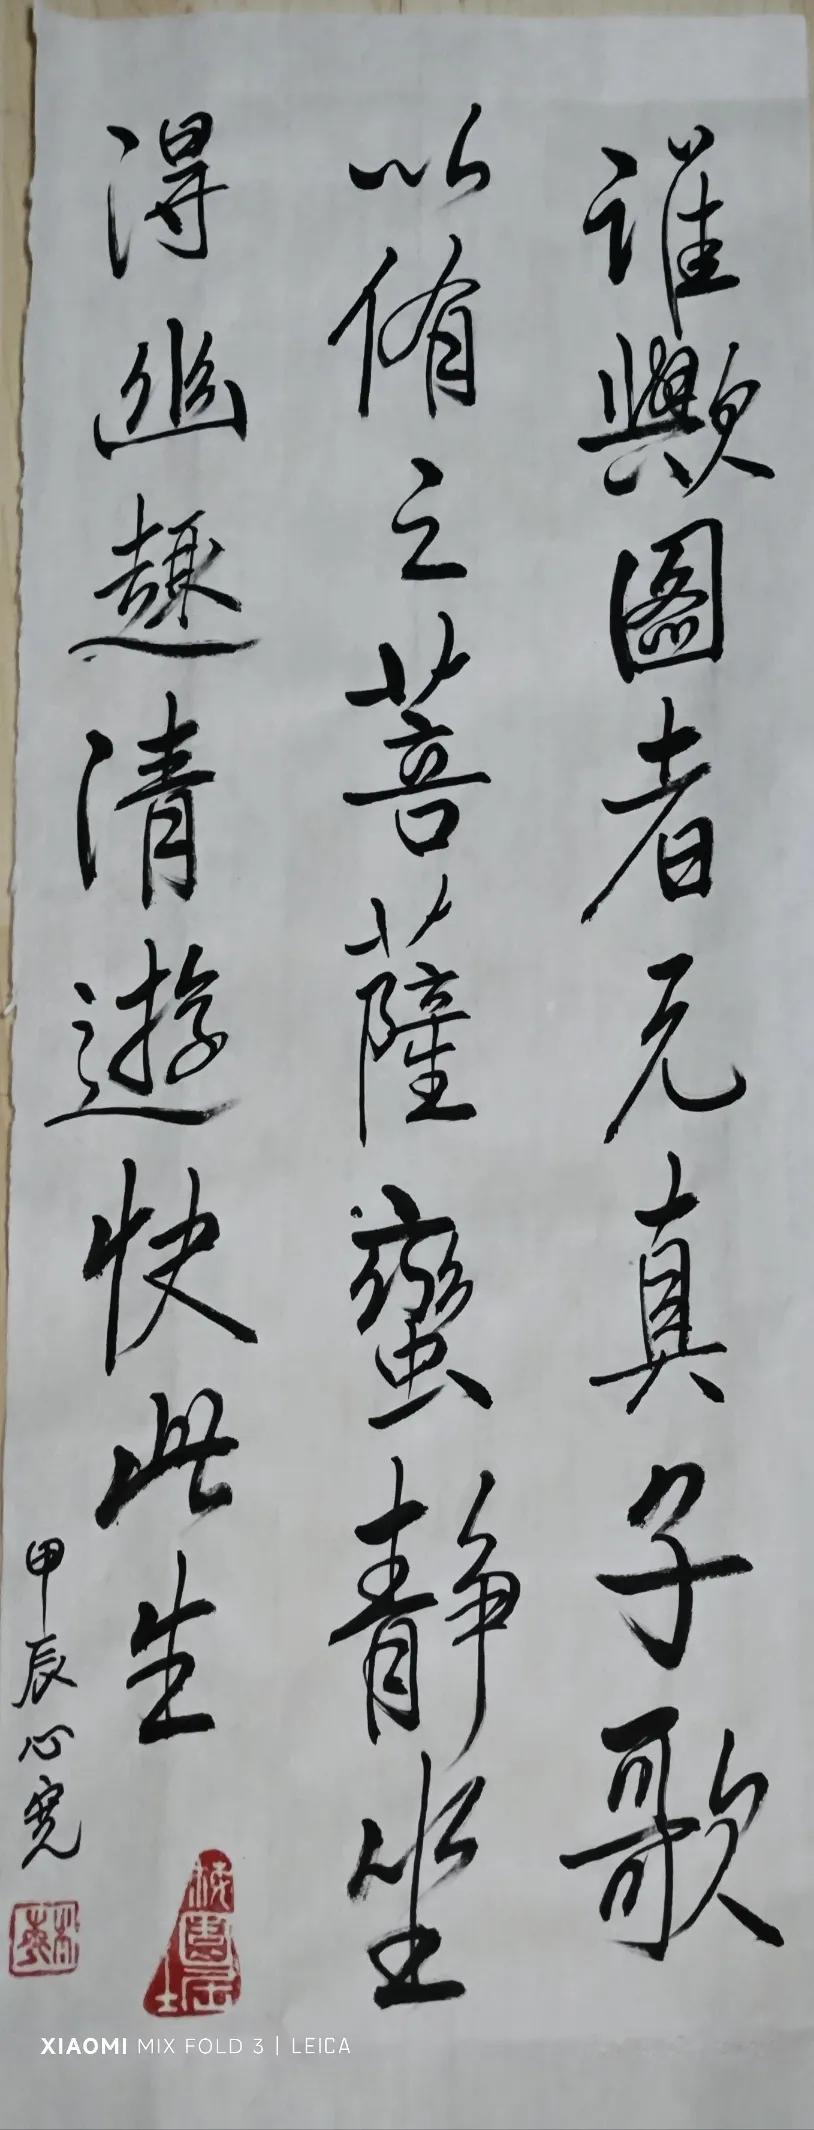 誰歟圖者元真子歌
以侑之菩薩蠻靜坐
得幽趣清遊快此生
甲辰心寬
XIAOMI MIX FOLD 3 | LEICA